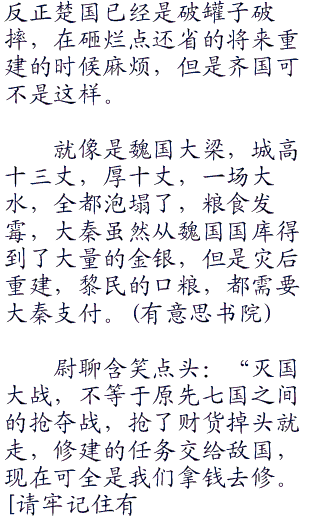 反正楚国已经是破罐子破
摔，在砸烂点还省的将来重
建的时候麻烦，但是齐国可
不是这样。
就像是魏国大梁，城高
十三丈，厚十丈，一场大
水，全都泡塌了，粮食发
霉，大秦虽然从魏国国库得
到了大量的金银，但是灾后
重建，黎民的口粮，都需要
大秦支付。(有意思书院)
尉聊含笑点头：“灭国
大战，不等于原先七国之间
的抢夺战，抢了财货掉头就
走，修建的任务交给敌国，
现在可全是我们拿钱去修。
[请牢记住有